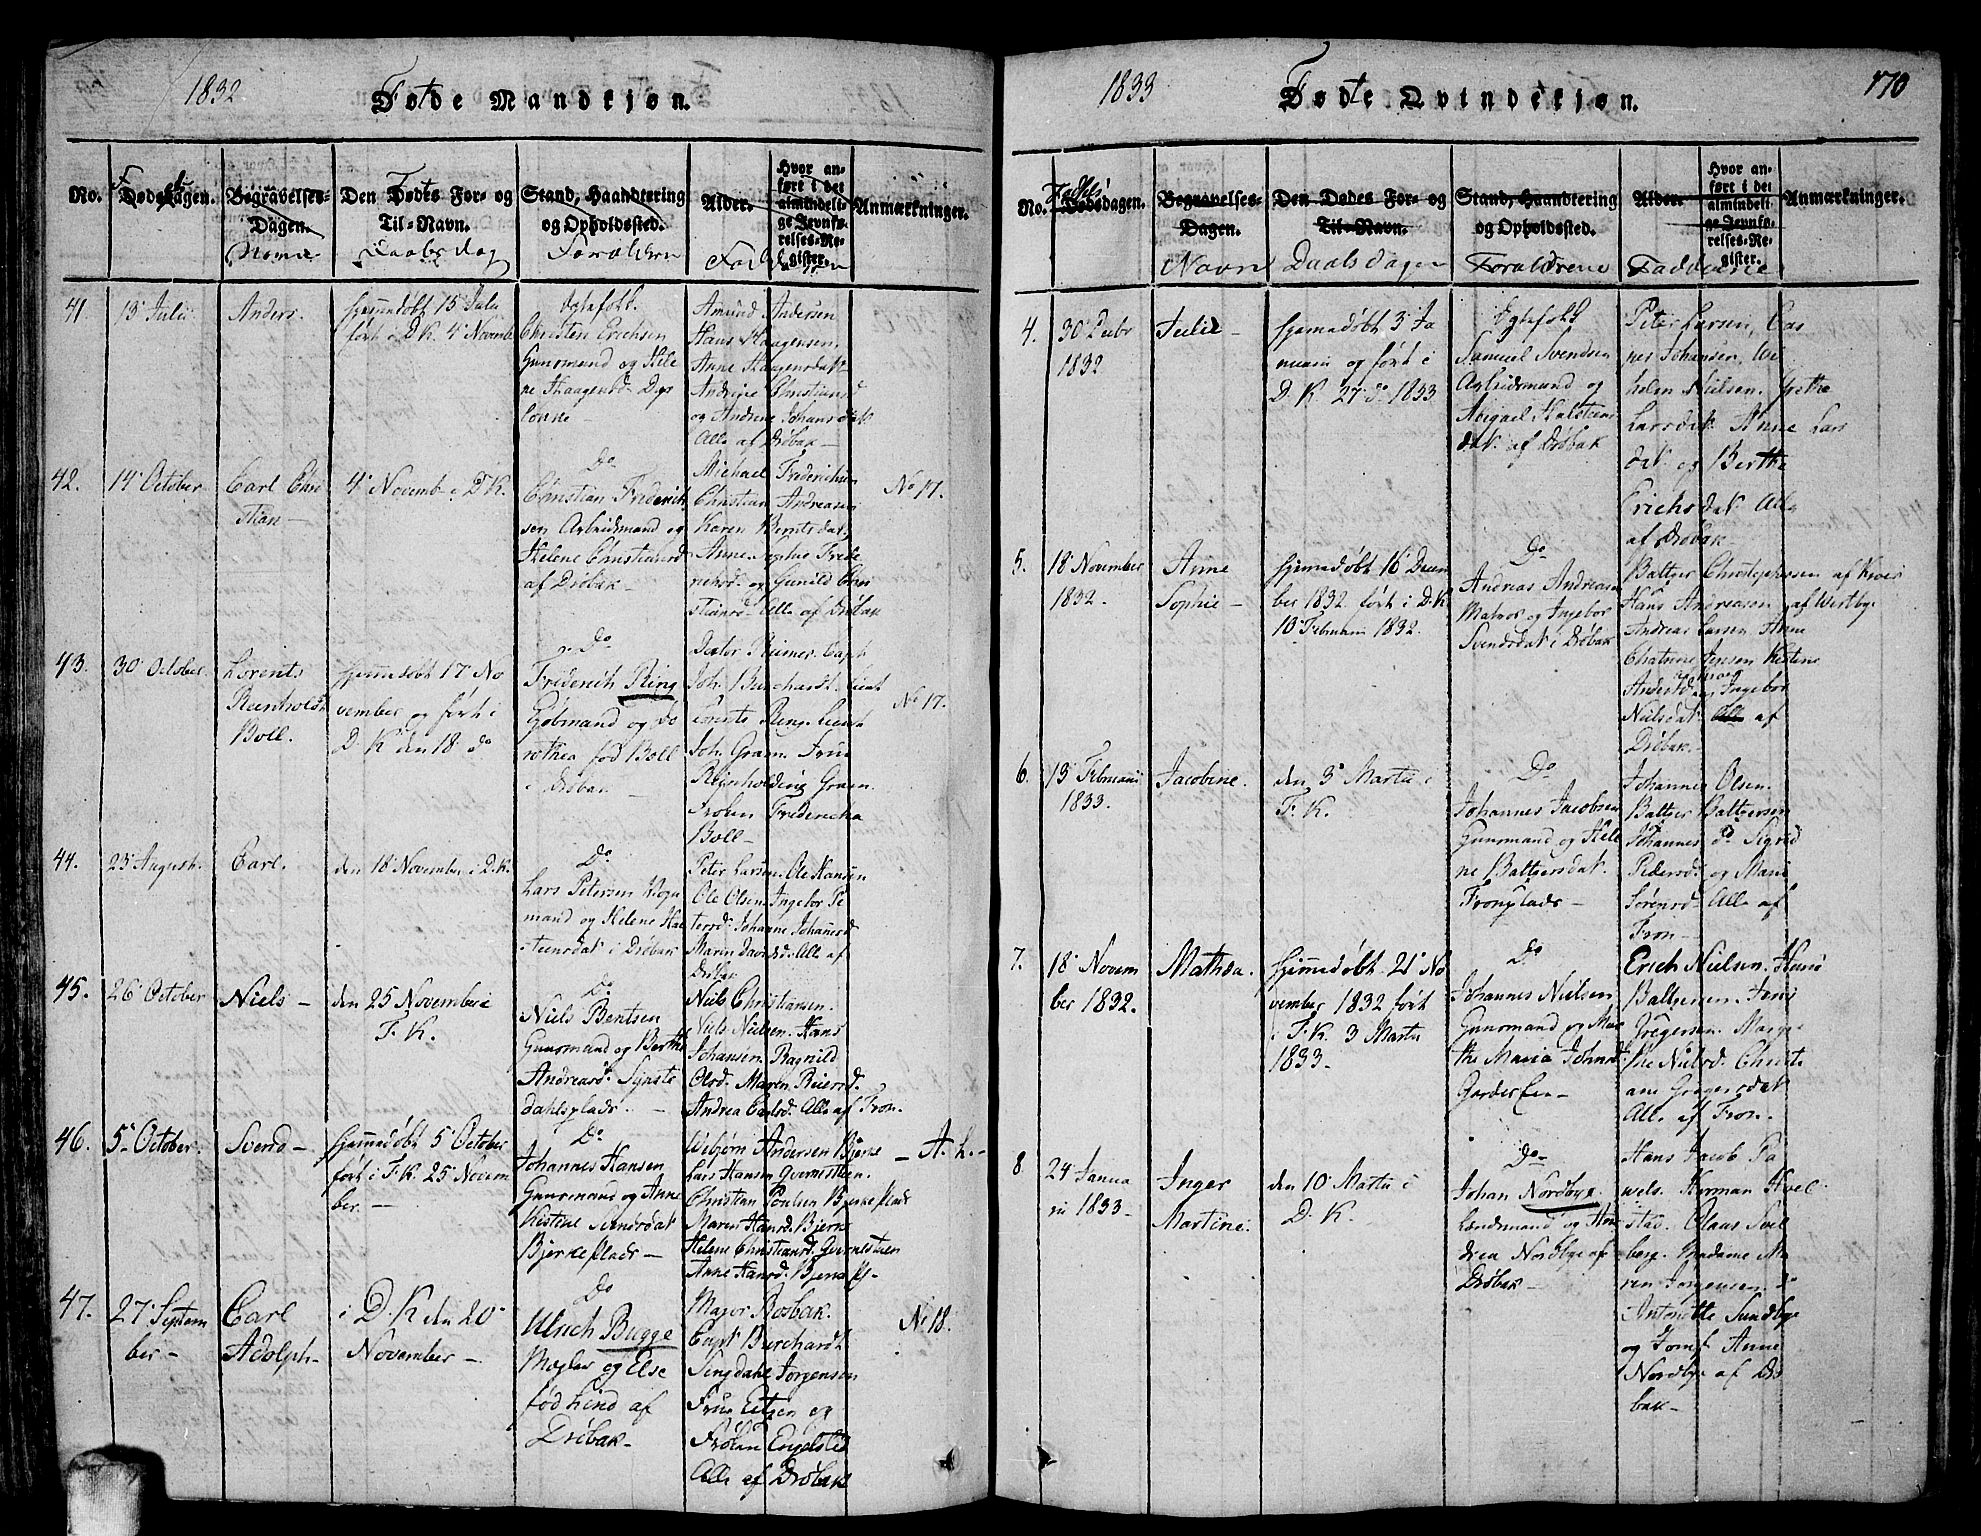 1832
Fødte Mandkjøn.
No. Fødselsdagen. Begravelses-Dagen. Den Fødtes For- og Til-Navn. Stand, Haandtering og Opholdssted. Alder. Hvor anført i det almindelige Jevnførelses-Register. Anmærkninger.
Navne Daabsdag Forældren Fadderne
41. 13 Julii Anders.
Hjemmedøbt 15 Julii
ført i D.K. 4 Novembr
Egtefolk.
Christen Erichsen
Gunsmand og Hele
ne Haagensd.
Amund Andersen
Hans Haagensen,
Anne Haagensdatt
Andrine Christiansd
og Andrine Johansdak
Alle af Drøbak
42. 14 October Carl Chri
stian
4 Novemb i D.K.
Do
Christian Frederich
sen Arbeidsmand og
Helene Christiansd
af Drøbak
Michael Frederichsen
Christian Andreasen
Karen Berntsdat,
Anne Sophie Frede
richsd. og Gunild Chri
stiansd. Alle af Drøbak
No 17.
43. 30 October Lorents
Reinholdt
Boll.
Hjemmedøbt 17 No
vember og ført i
D.K. den 18 do
Do
Frederich Ring
Gobmand og Do
rothea fød Boll
i Drøbak
Doctor Reimers. Capt
Joh. Burchardt. Lieut
Lorents Ring. Lieut
Joh. Gram. Frue
Reinholdine Gram.
Frøken Fredericha
Boll
No 17.
44. 23 August. Carl. den 18 November i D.K.
Do
Lars Petersen Vogn
mand og Helene Hal
steensdak i Drøbak
Peter Larsen. Ole Hansen
Ole Olsen. Ingebor Pe
tersd. Johanne Johansd
Maren Davidsd. Alle af
Drøbak
45. 26 October Niels den 25 November i
F.K.
Do
Niels Bentsen
Gunsmand og Berthe
Andreasd.
dahlsplads.
Niels Christiansen.
Niels Nielsen. Hans
Johansen. Ragnild
Olsd. Maren Reiersd.
Andrea Carlsd. Alle af Fron.
46. 5 October. Svend
Hjemmedøbt 5 October
ført i F.K. 25 Novem
ber.
Do
Johannes Hansen
Gunsmand og Anne
Kistine Svendsdat
Bjerkeplads
Webjørn Andersen Bjerke
Lars Hansen Gvernsteen.
Christian Poulsen Bjerkeplads
Maren Hansd. Bjerke
Helene Christiansd. Gvernsteen
Anne Hansd. Bjerke Pl
A. L.
47. 27 Septem
ber
Carl
Adolph
i D.K. den 20
November
Do
Ulrich Bugge
Mægler og Else
fød Lind af
Drøbak
Major Rosbak.
Capt Burchardt
Singdahl Jørgensen
Frue Eitzen og
Frøken Engelsted
Alle af Drøbak
No 18.
1833
Fødte Qvindekjøn.
170
No. Fødselsdagen. Begravelses-Dagen. Den Dødes For- og Til-Navn. Stand, Haandtering og Opholdssted. Alder. Hvor anført i det almindelige Jevnførelses-Register. Anmærkninger.
Navn Daabsdagen Forældrene Fadderne
4. 30 Decbr
1832
Julie
Hjemmedøbt 3 Ja
nuarii og ført i
D.K. 27 do 1833
Egtefolk
Samuel Svendsen
Arbeidsmand og
Abigael Halsteens
dak af Drøbak
Peter Larsen,
Johansen,
Nielsen. Grethe
Larsdak Anne Lars
dak og Berthe
Erichsdak Alle
af Drøbak
5. 18 November
1832.
Anne
Sophie
Hjemmedøbt 16 Decem
ber 1832. ført i D.K.
10 Februarii 1832.
Do
Andreas Andreasen
Matros og Ingebor
Svendsdak i Drøbak
Baltzer Christophersen af
Hans Andreasen af Westby
Andreas Larsen Anne
Jensen Kistine
Andersd. Ingebor
Nielsdak Alle af
Drøbak
6. 13 Februarii
1833.
Jacobine.
den 3 Martii i
F.K.
Do
Johannes Jacobsen
Gunsmand og Hele
ne Baltzersdak.
Fronplads
Johannes Olsen.
Baltzer Baltzersen
Johannes do Sigrid
Pedersd. og Marie
Sørensd. Alle af
Fron
7. 18 Novem
ber 1832.
Mathea.
Hjemmedøbt 21 No
vember 1832 ført
i F.K. 3 Martii
1833.
Do
Johannes Nielsen
Gunsmand og Mar
the Maria Johnsd.
Erich Nielsen. Hans
Baltzersen. Jens
Gregersen. Margre
the Nielsd. Christi
ane Gregersdak
Alle af Fron.
8. 24 Janua
rii 1833
Inger
Martine.
den 10 Martii i
D.K.
Do
Johan Nordbye
Lændsmand og Hen
drea Nordbye af
Drøbak
Hans Jacob Pa
wels. Herman Hvel
stad. Claus Svel
berg. Madame Ma
ren Jørgensen. Do
Antonette Sundbye
og Jomf Anne
Nordbye af Drø
bak